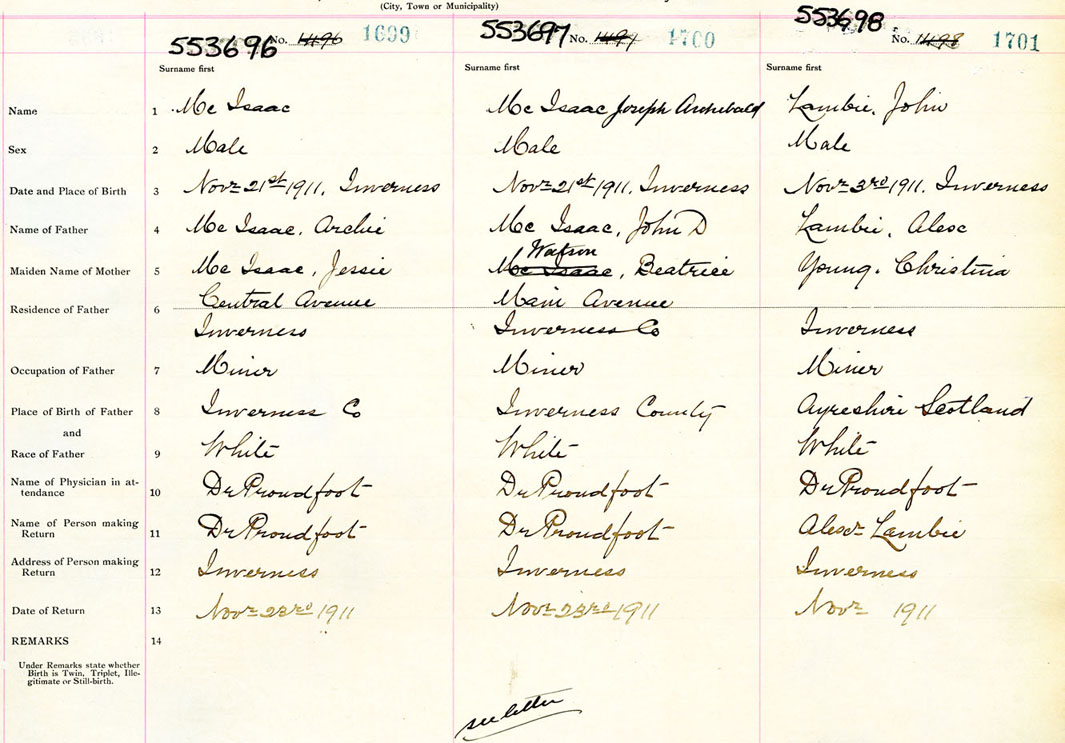 (City, Town or Municipality)
553696 No. 1496 1699 553697 No. 1497 1700 553698 No. 1498 1701
Surname first Surname first Surname first
Name 1 Mc Isaac Mc Isaac Joseph Archebald Lambie, John
Sex 2 Male Male Male
Date and Place of Birth 3 Novr 21st 1911, Inverness Novr 21st 1911, Inverness Novr 3rd 1911. Inverness
Name of Father 4 Mc Isaac, Archie Mc Isaac, John D Lambie, Alesc
Watson
Maiden Name of Mother 5 Mc Isaac, Jessie Mc Isaac, Beatrice Young. Christina
Central Avenue Main Avenue
Residence of Father 6
Inverness Inverness Co Inverness
Occupation of Father 7 Miner Miner Miner
Place of Birth of Father 8 Inverness Co Inverness County Ayreshire Scotland
and
Race of Father 9 White White White
Name of Physician in at-
tendance 10 Dr Proudfoot Dr Proudfoot Dr Proudfoot
Name of Person making
Return 11 Dr Proudfoot Dr Proudfoot Alescr Lambie
Address of Person making
Return 12 Inverness Inverness Inverness
Date of Return 13 Novr 23rd 1911 Novr 23rd 1911 Novr 1911
REMARKS 14
Under Remarks state whether
Birth is Twin, Triplet, Ille-
gitimate or Still-birth.
see letter